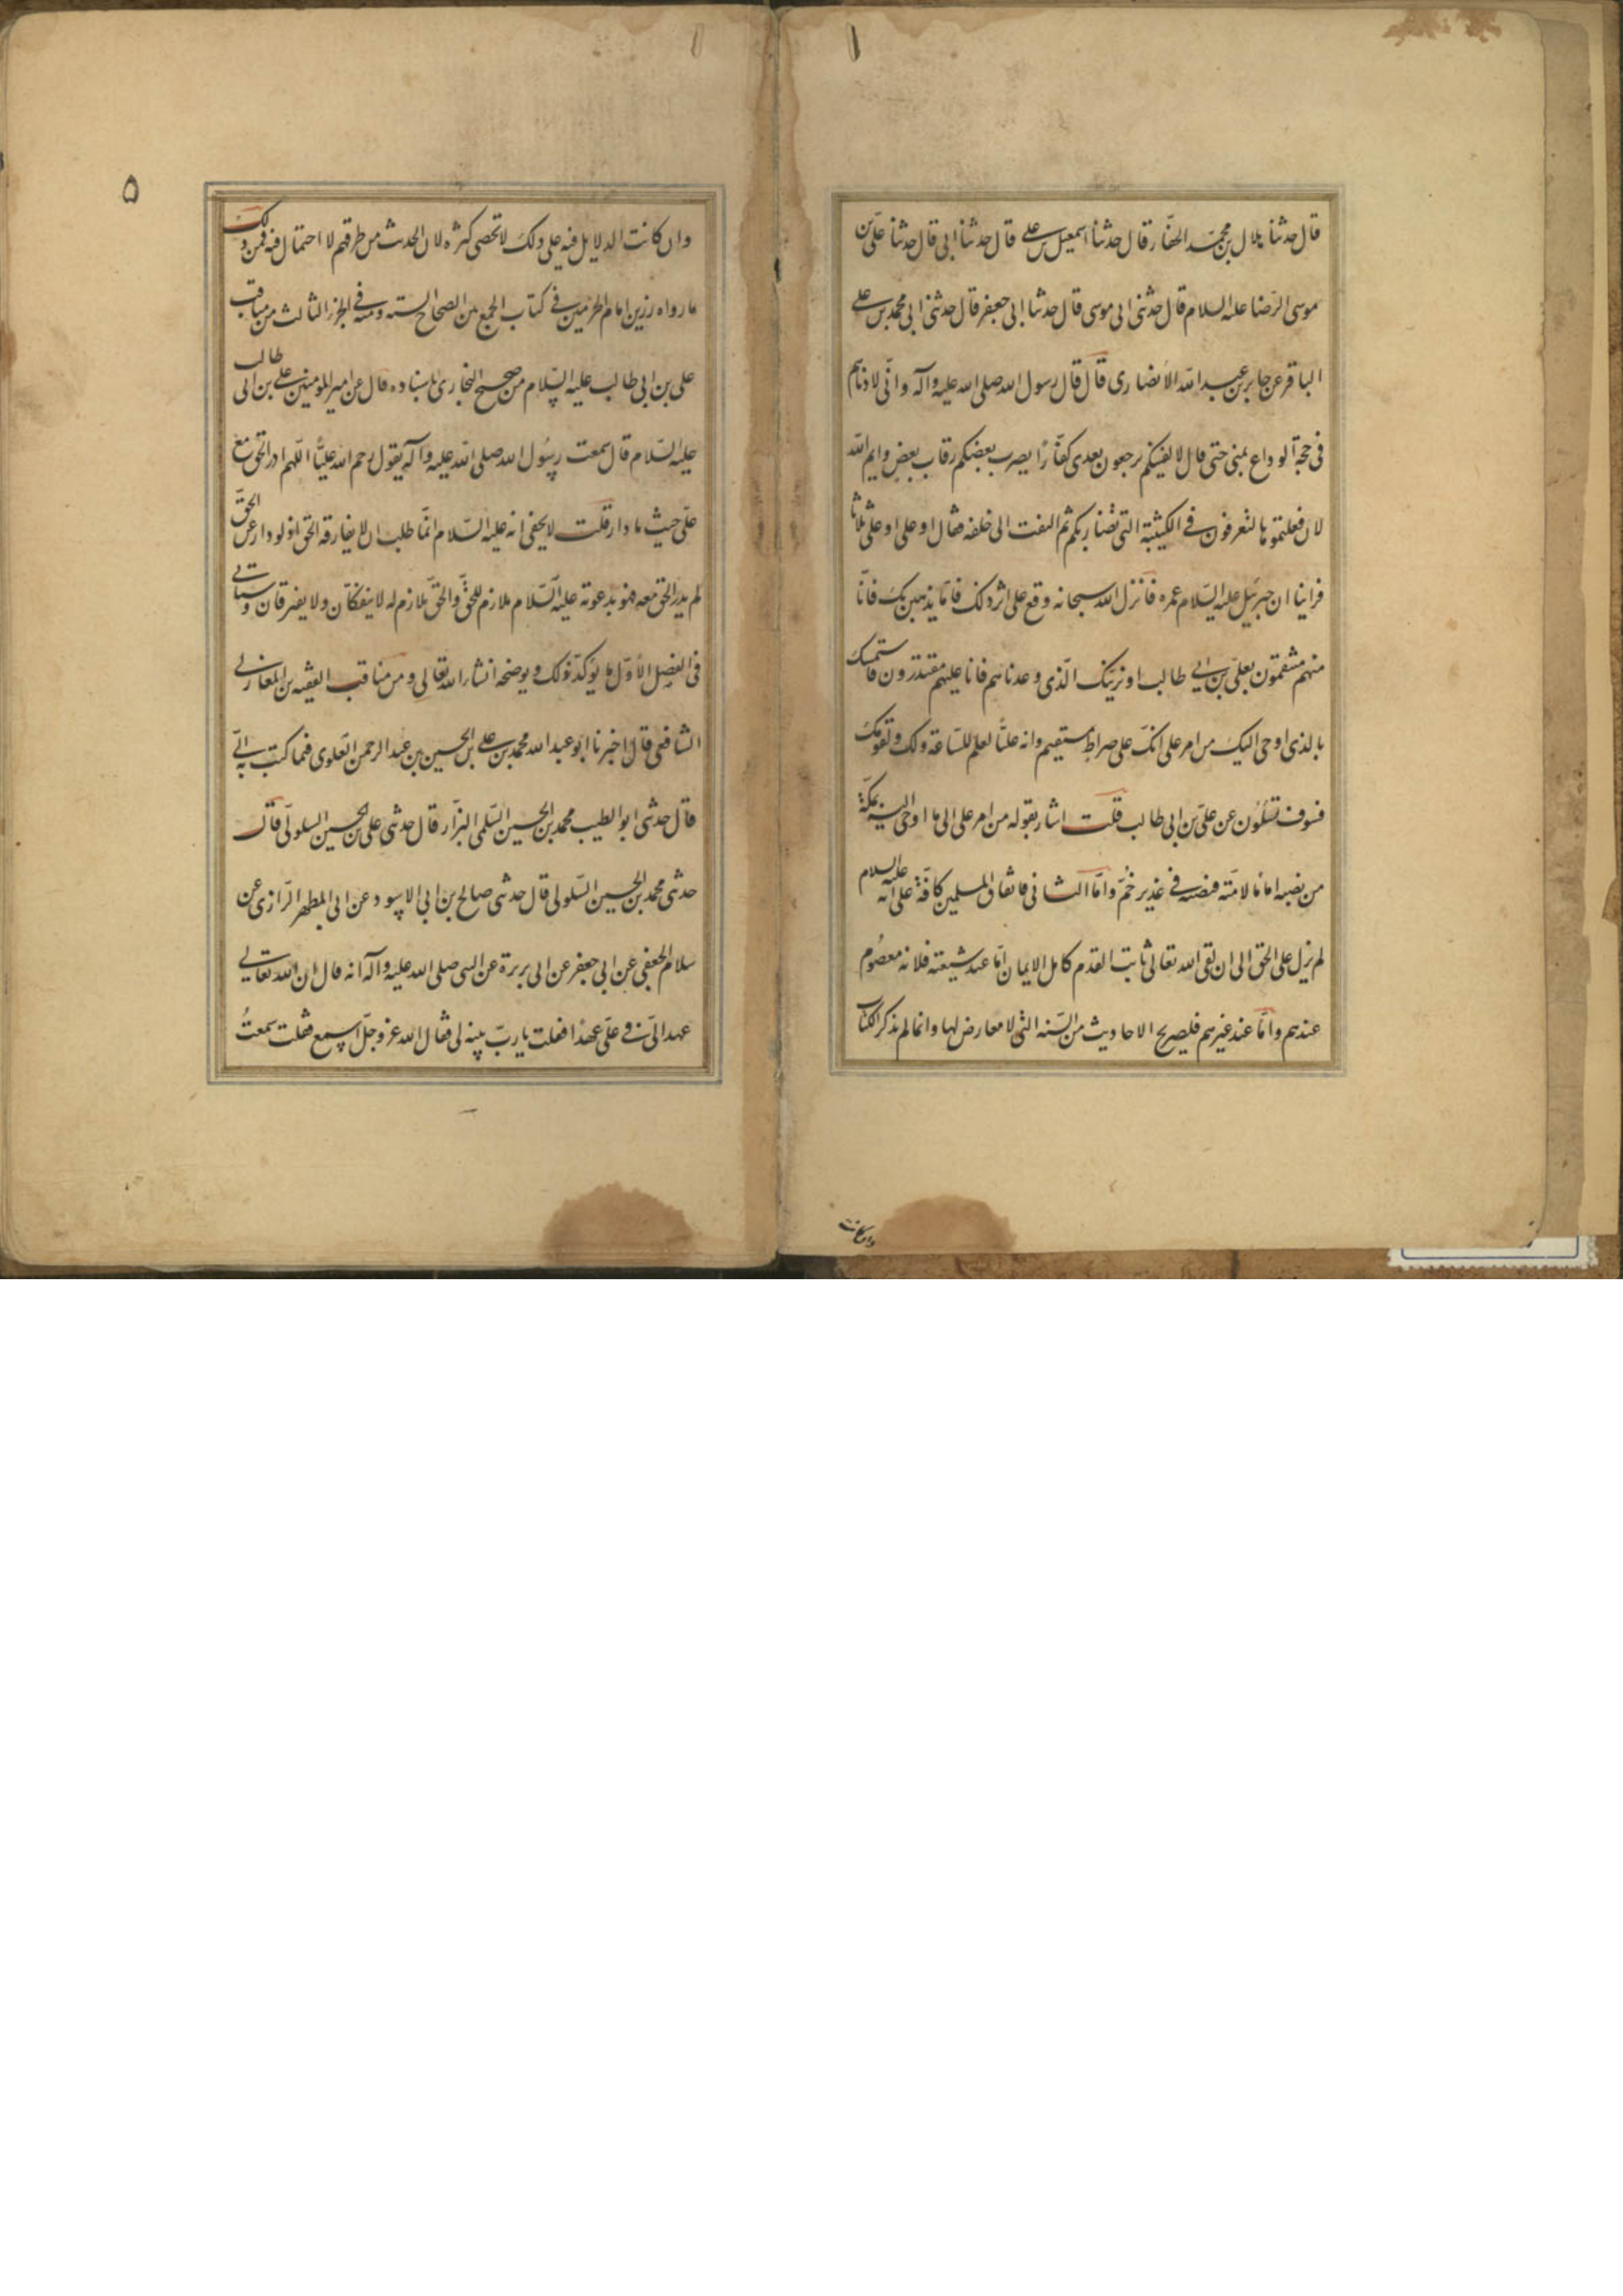 قال حدثنا هلال بن محمد الحفار قال حدثنا اسمعيل بن على قال حدثنا ابى قال حدثنا على بن
موسى الرضا عليه السلام قال حدثنى ابى موسى قال حدثنا ابى جعفر قال حدثنى ابى محمد بن على
الباقر عن جابر بن عبد الله الانصارى قال قال رسول الله صلى الله عليه وآله وانى لادناهم
فى حجة الوداع بمنى حتى قال لا لفينكم ترجعون بعدى كفارا يضرب بعضكم رقاب بعض وايم الله
لان فعلتموها لتعرفون فى الكتيبة التى تضاربكم ثم التفت الى خلفه فقال او على او على ثلاثا
فراينا ان جبرئيل عليه السلام غمزه فانزل الله سبحانه وقع على اثر ذلك فاما نذهبن بك فانا
منهم منتقمون بعلى بن ابى طالب او نرينك الذى وعدناهم فانا عليهم مقتدرون فاستمسك
بالذى اوحى اليك من امر على انك على صراط مستقيم وانه عليا لعلم للساعة ولك ولقومك
فسوف تسئلون عن على بن ابى طالب قلت اشار بقوله من امر على الى ما اوحى اليه بمكة
من نصبه اماما لامته فنصبه فى غدير خم واما الثانى فاتفاق المسلمين كافة على انه عليه السلام
لم يزل على الحق الى ان لقى الله تعالى ثابت القدم كامل الايمان اما عند شيعته فلانه معصوم
عندهم واما عند غيرهم فلصريح الاحاديث من السنه التى لا معارض لها وانما لم نذكر الكتاب
وان كانت
٥
وان كانت الدلايل فيه على ذلك لا تحصى كثره لان الحديث من طرقهم لا احتمال فيه فمن ذلك
ما رواه رزين امام الحرمين فى كتاب الجمع بين الصحاح السته ومنه فى الجزء الثالث من مناقب
على بن ابى طالب عليه السلام من صحيح البخارى باسناده قال عن امير المومنين على بن ابى طالب
عليه السلام قال سمعت رسول الله صلى الله عليه وآله يقول رحم الله عليا اللهم ادر الحق مع
على حيث ما دار قلت لا يخفى انه عليه السلام انما طلب ان لا يفارقه الحق اذ لو دار عن الحق
لم يدر الحق معه فهو بدعوته عليه السلام ملازم للحق والحق ملازم له لا ينفكان ولا يفترقان وسياتى
فى الفصل الاول ما يؤكد ذلك ويوضحه انشاء الله تعالى ومن مناقب الفقيه بن المغازلى
الشافعى قال اخبرنا ابو عبد الله محمد بن على بن الحسين بن عبد الرحمن العلوى فيما كتب به الى
قال حدثنى ابو الطيب محمد بن الحسين السلمى البزار قال حدثنى على بن الحسين السلولى قال
حدثنى محمد بن الحسين السلولى قال حدثنى صالح بن ابى الاسود عن ابى المطهر الرازى عن
سلام الجعفى عن ابى جعفر عن ابى برزة عن النبى صلى الله عليه وآله انه قال ان الله تعالى
عهد الى فى على عهدا فقلت يارب بينه لى فقال الله عز وجل اسمع فقلت سمعت